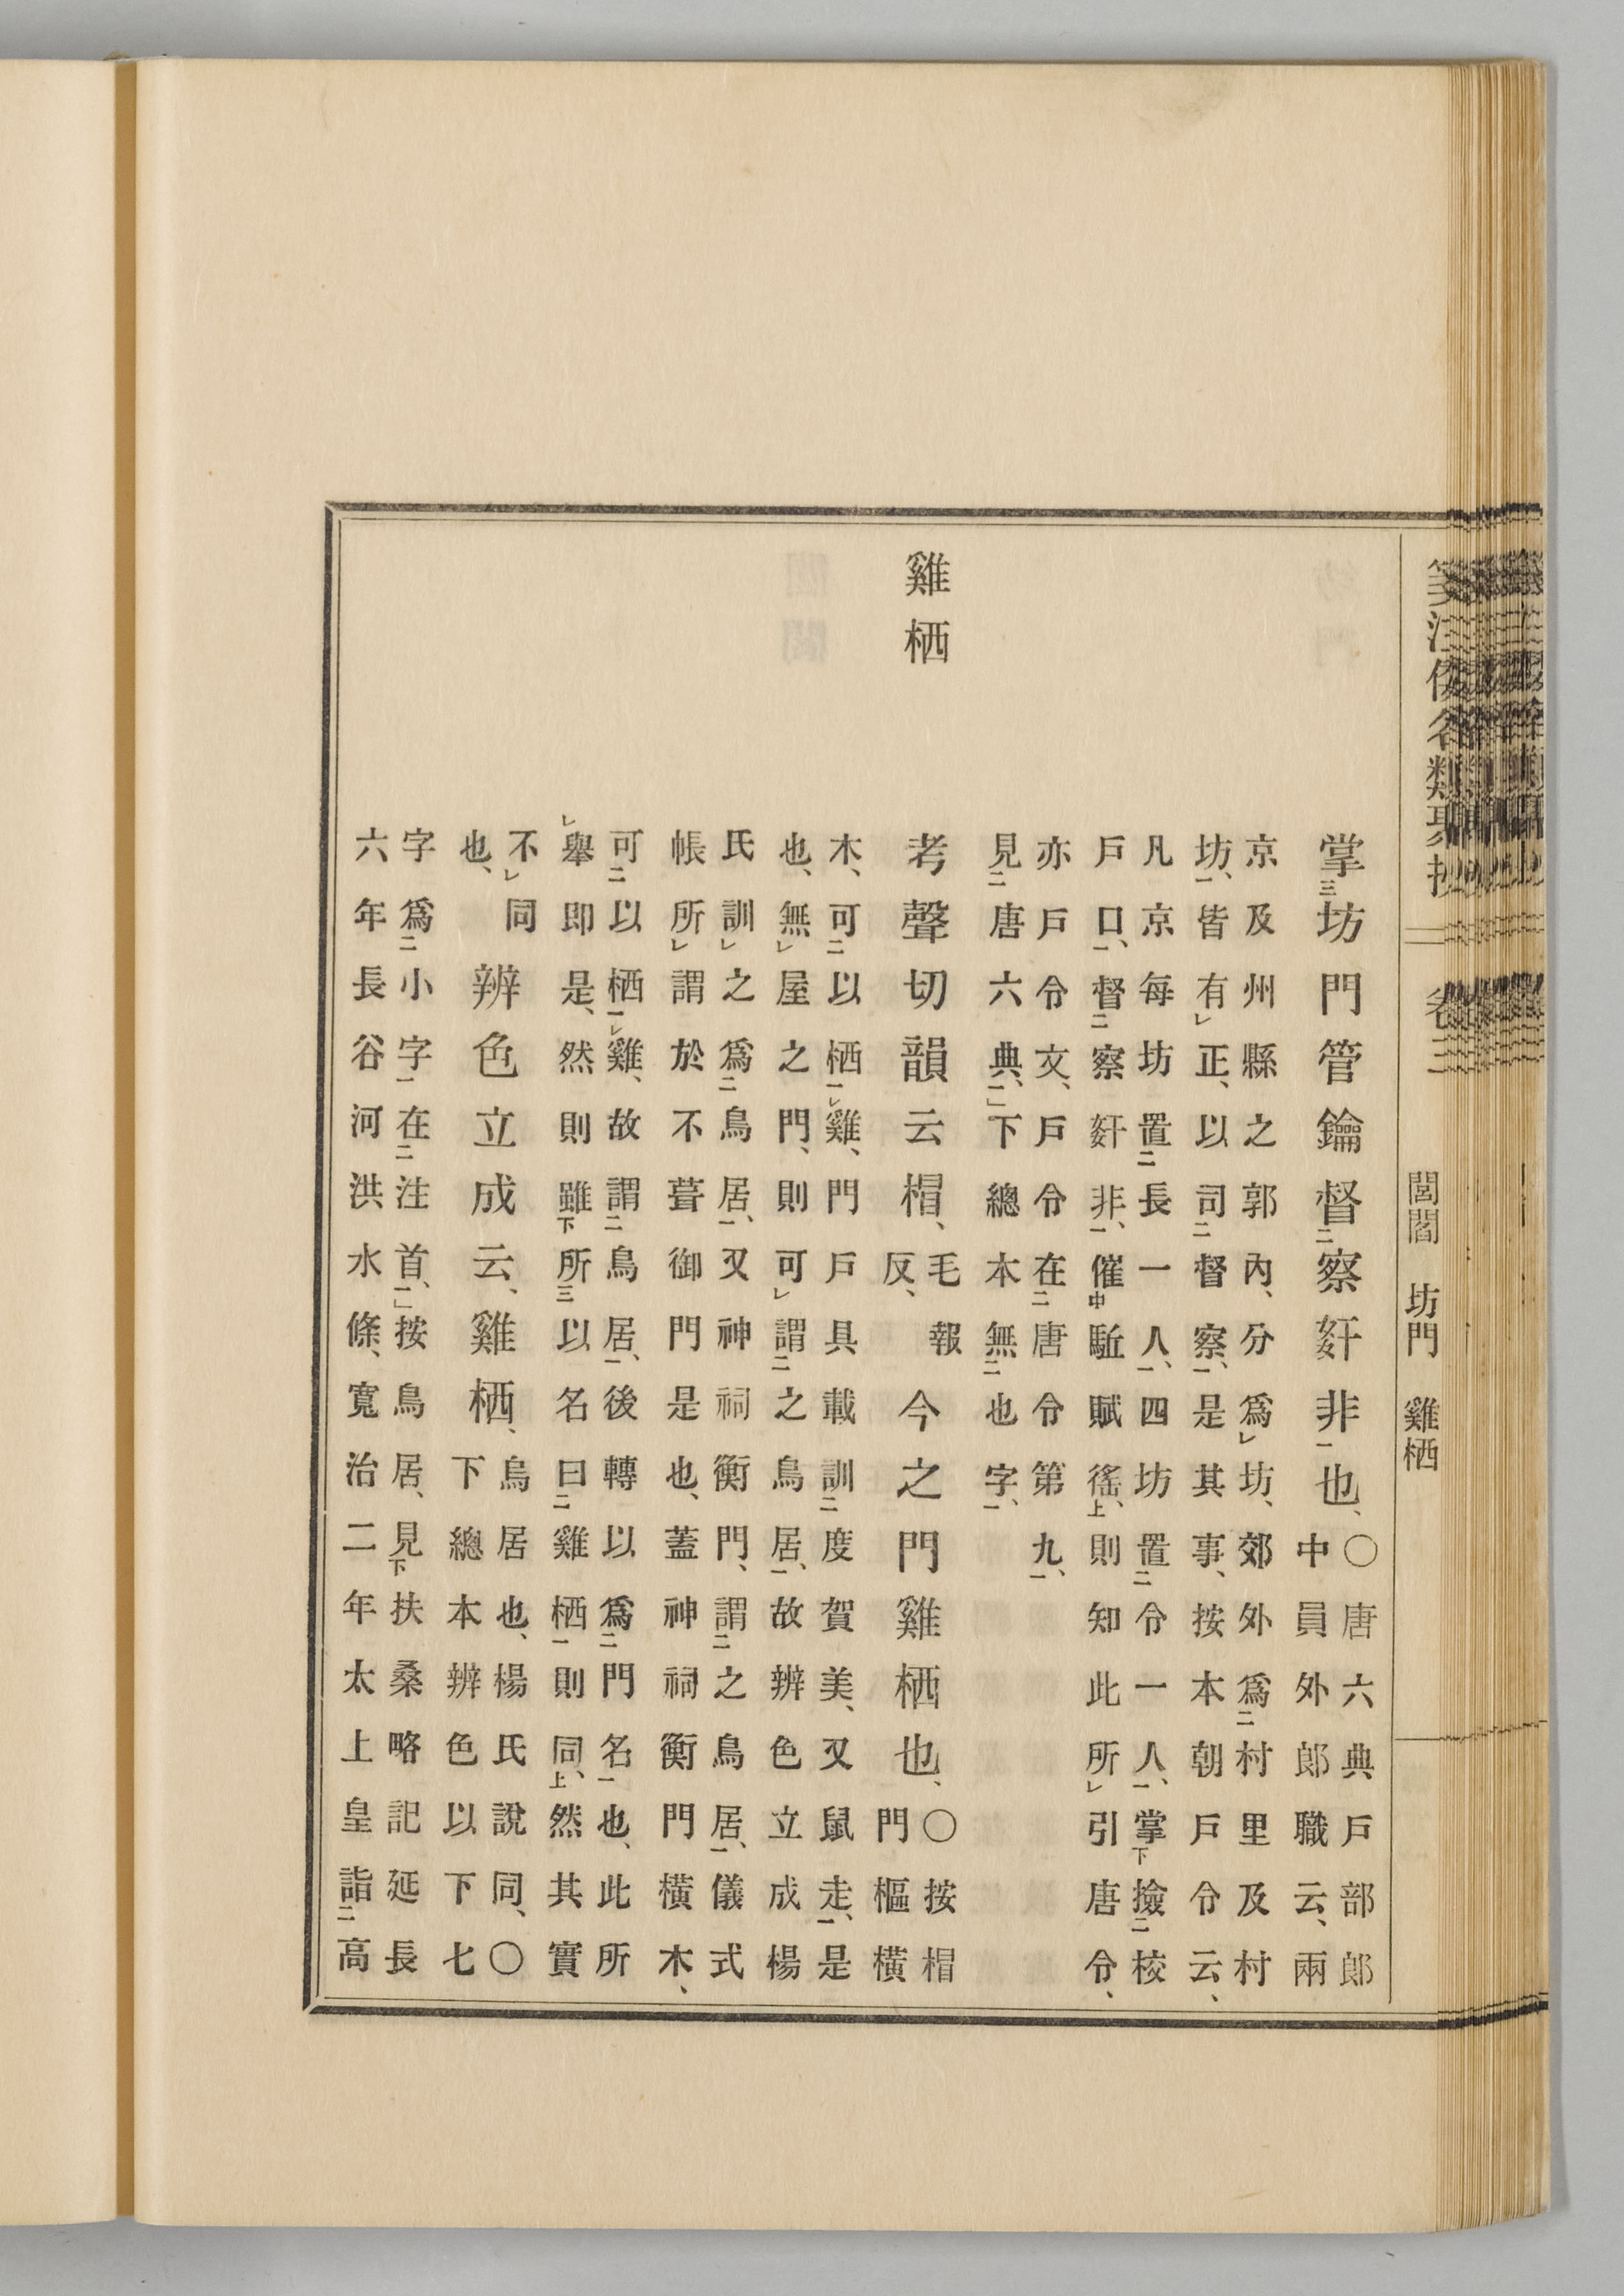 箋注倭名類聚抄 卷三 閭閻 坊門 雞栖
掌三坊門管鑰督二察奸非一也、
〇唐六典戶部郎
中員外郎職云、兩
京及州縣之郭內、分爲レ坊、郊外爲二村里及村
坊一、皆有レ正、以司二督察一、是其事、按本朝戶令云、
凡京每坊置二長一人一、四坊置二令一人一、掌下撿二校
戶口一、督二察奸非一、催中駈賦徭上、則知此所レ引唐令、
亦戶令文、戶令在二唐令第九一、
見二唐六典一、」下總本無二也字一、
雞栖
考聲切韻云㮌、
毛報
反、
今之門雞栖也、
〇按㮌
門樞橫
木、可二以栖一レ雞、門戶具載訓二度賀美、又鼠走一、是
也、無レ屋之門、則可レ謂二之鳥居一、故辨色立成楊
氏訓レ之爲二鳥居一、又神祠衡門、謂二之鳥居一、儀式
帳所レ謂於不葺御門是也、蓋神祠衡門橫木、
可二以栖一レ雞、故謂二鳥居一、後轉以爲二門名一也、此所
レ擧即是、然則雖下所三以名曰二雞栖一則同上、然其實
不レ同
也、
辨色立成云、雞栖、
鳥居也、楊氏說同、〇
下總本辨色以下七
字爲二小字一在二注首一、」按鳥居、見下扶桑略記延長
六年長谷河洪水條、寬治二年太上皇詣二高